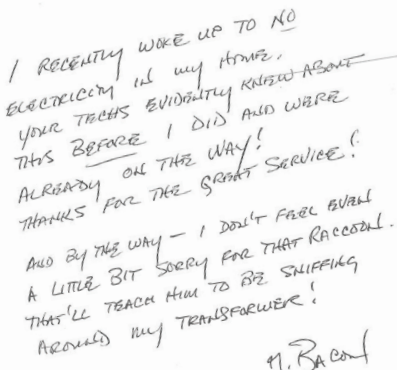 I RECENTLY WOKE UP TO NO
ELECTRICITY IN MY HOME.
YOUR TECHS EVIDENTLY KNEW ABOUT
THIS BEFORE I DID AND WERE
ALREADY ON THE WAY!
THANKS FOR THE GREAT SERVICE!
AND BY THE WAY — I DON'T FEEL EVEN
A LITTLE BIT SORRY FOR THAT RACCOON.
THAT'LL TEACH HIM TO BE SNIFFING
AROUND MY TRANSFORMER!
M. BACON